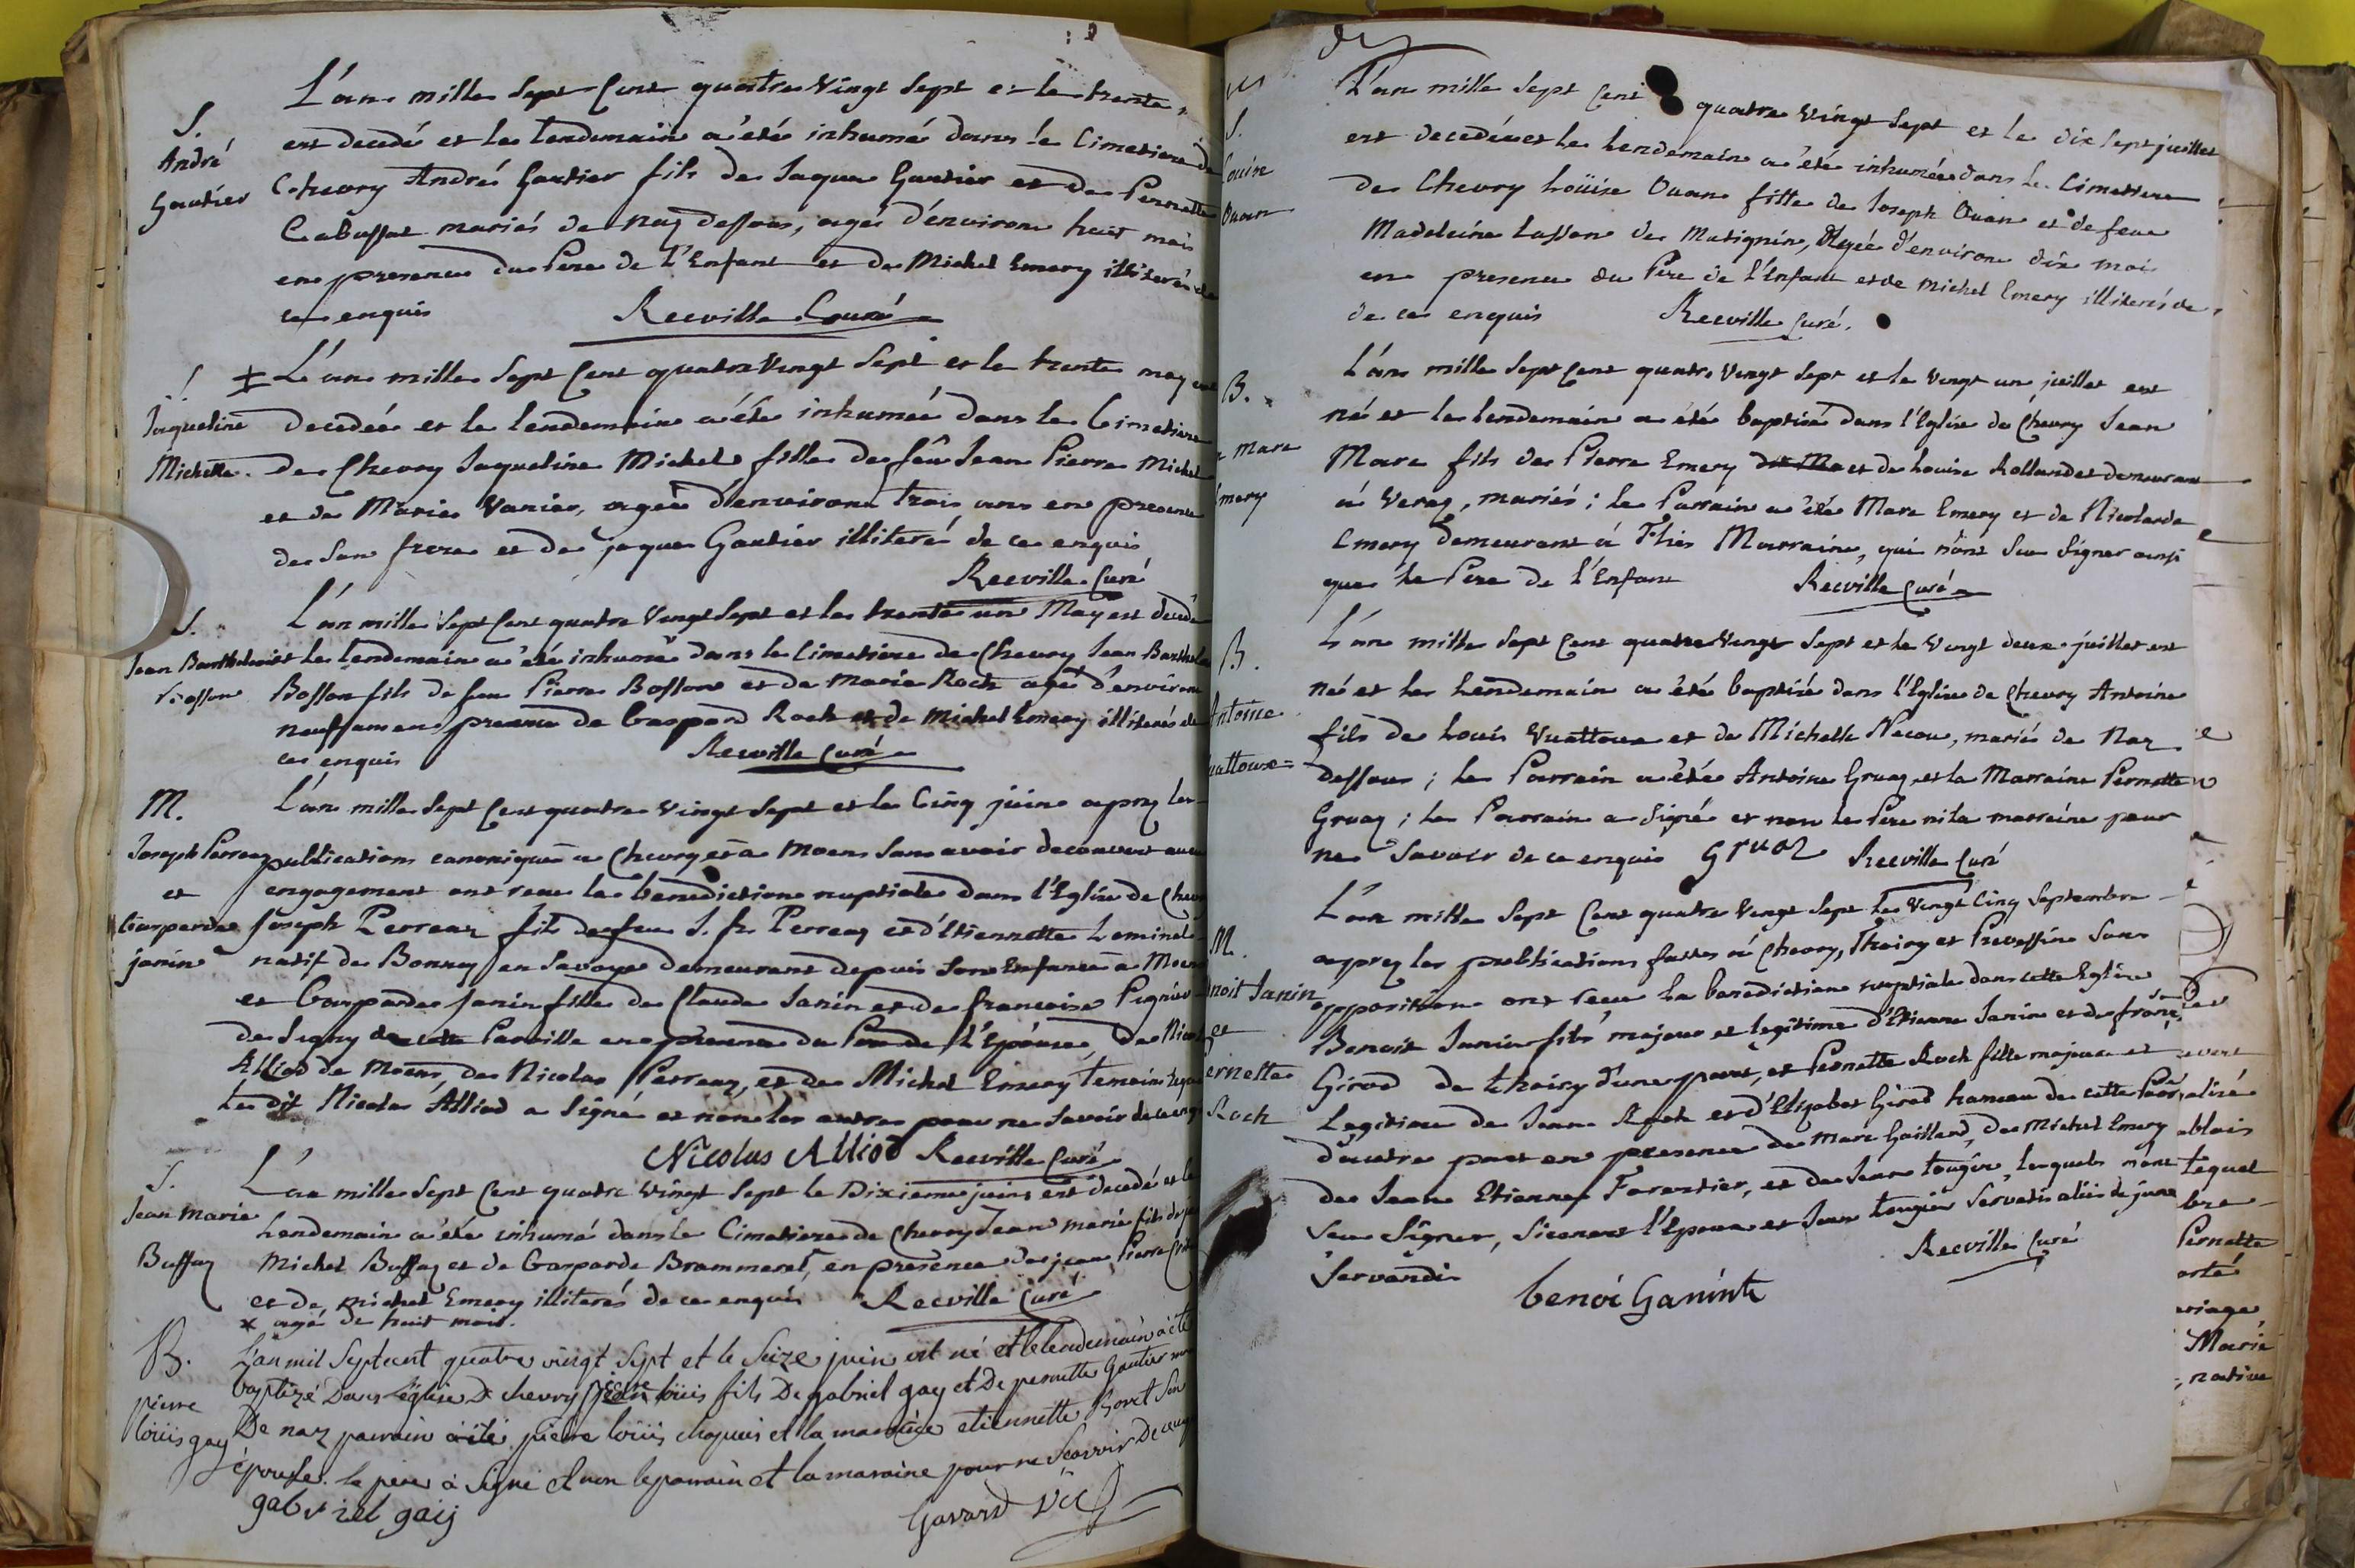 L'an mille Sept Cent quatre Vingt Sept et le trente
S. est decedé et le lendemain a été inhumé dans le Cimetiere de
André Gautier Chevry André Gautier fils de Jaque Gautier et de Pernette
Cabussat mariés de Naz dessous, agé d'environ huit mois
en presence du Pere de l'Enfant et de Michel Emery illiterés de
ce enquis Recville Curé
S. ‡ L'an mille Sept Cent quatre Vingt Sept et le trente may est
Jaqueline decedée et le lendemain a été inhumée dans le Cimetiere
Michette. de Chevry Jaqueline Michel fille de feû Jean Pierre Michel
et de Marie Vanier, agée d'environ trois ans en presence
de Son frere et de jaque Gautier illiteré de ce enquis
Recville Curé
S. L'an mille Sept Cent quatre Vingt Sept et le trente un May est decedé
Jean Barthelemi et le lendemain a été inhumé dans le Cimetiere de Chevry Jean Barthele
Bosson Bosson fils de feu Pierre Bosson et de Marie Roch agé d'environ
neuf ans en presence de Gaspard Roch et de Michel Emery illiterés de
ce enquis Recville Curé
M. L'an mille Sept Cent quatre Vingt Sept et le Cinq juin aprez les
Joseph Perreaz publications canoniques a Chevry et a Moens Sans avoir decouvert aucun
et engagement ont reçu la benediction nuptiale dans l'Eglise de Chevry
Gasparde Joseph Perreaz fils de feu J. fr. Perreaz et d'Etiennette Leminet
janin natif de Bonney en Savoye demeurant depuis Son Enfance a Moens
et Gasparde Janin fille de Claude Janin et de francoise Pignier
de Segny de cette Paroisse en presence du Pere de l'Epouse, de Nicolas
Alliod de Moens, de Nicolas Perreaz, et de Michel Emery temoins
Le dit Nicolas Alliod a Signé et non les autres pour ne Savoir de ce enq
Nicolas Alliod Recville Curé
S. L'an mille Sept Cent quatre Vingt Sept le Dixieme juin est decedé et le
Jean Marie Lendemain a été inhumé dans le Cimetiere de Chevry Jean Marie fils de
Buffaz Michel Buffaz et de Gasparde Brammerel, en presence de jean Pierre
et de Michel Emery illiterés de ce enquis Recville Curé
x agé de huit mois.
B. L'an mil Septcent quatre vingt Sept et le Seize juin est né et le lendemain a été
pierre baptizé Dans L'église De chevry pierre loüis fils De gabriel gay et De pernette Gautier
loüis gay De naz parrain a été pierre loüis chapuis et la marraine etiennette Goret Son
épouse. le pere à Signé et non le parrain et la maraine pour ne Scavoir De ce enq
gabriel gaij Gavard Vic
L'an mille Sept Cent quatre Vingt Sept et le dix Sept juillet
S. est decedée et le lendemain a été inhumée dans le Cimetiere
Louise de Chevry Loüise Ouan fille de Joseph Ouan et de feue
Ouan Madeleine Lasson de Matignin, Agée d'environ dix mois
en presence du Pere de l'Enfant et de Michel Emery illiterés de
de ce enquis Recville Curé.
B. L'an mille Sept Cent quatre Vingt Sept et le Vingt un juillet est
né et le lendemain a été baptisé dans l'Eglise de Chevry Jean
Marc Marc fils de Pierre Emery et de Louise Rollandet demeurant
Emery à Veraz, mariés; le Parrain a été Marc Emery et de Nicolarde
Emery demeurant à Flies Marraine, qui n'ont Sue Signer ainsi
que le Pere de l'Enfant Recville Curé
B. L'an mille Sept Cent quatre Vingt Sept et le Vingt deux juillet est
né et le Lendemain a été baptisé dans l'Eglise de Chevry Antoine
Antoine fils de Louis Vuattoux et de Michelle Necou, mariés de Naz
uattoux= dessous; le Parrain a été Antoine Gruaz et la Marraine Pernette
Gruaz; le Parrain a Signé et non le Pere ni la marraine pour
ne Savoir de ce enquis Gruaz Recville Curé
L'an mille Sept Cent quatre Vingt Sept le Vingt Cinq Septembre
M. aprez les publications faites à Chevry, Thoiry et Prevessin Sans
noit Janin opposition ont reçu la benediction nuptiale dans cette Eglise
et Benoit Janin fils majeur et legitime d'Etienne Janin et de
ernette Girod de thoiry d'une part, et Pernette Roch fille majeure et
Roch Legitime de Jean Roch et d'Elizabet Girod hameau de cette
d'autre part en presence de Marc Gaillard, de Michel Emery
de Jean Etienne Forestier, et de Jean tougier, lesquels n'ont
Seu Signer, Sicenont l'Epoux et Jean tougier Servatis
Servandis Recville Curé
benoi Ganint
alisé
ablais
lequel
bre
Pernette
orté
ariage
Marie
, native